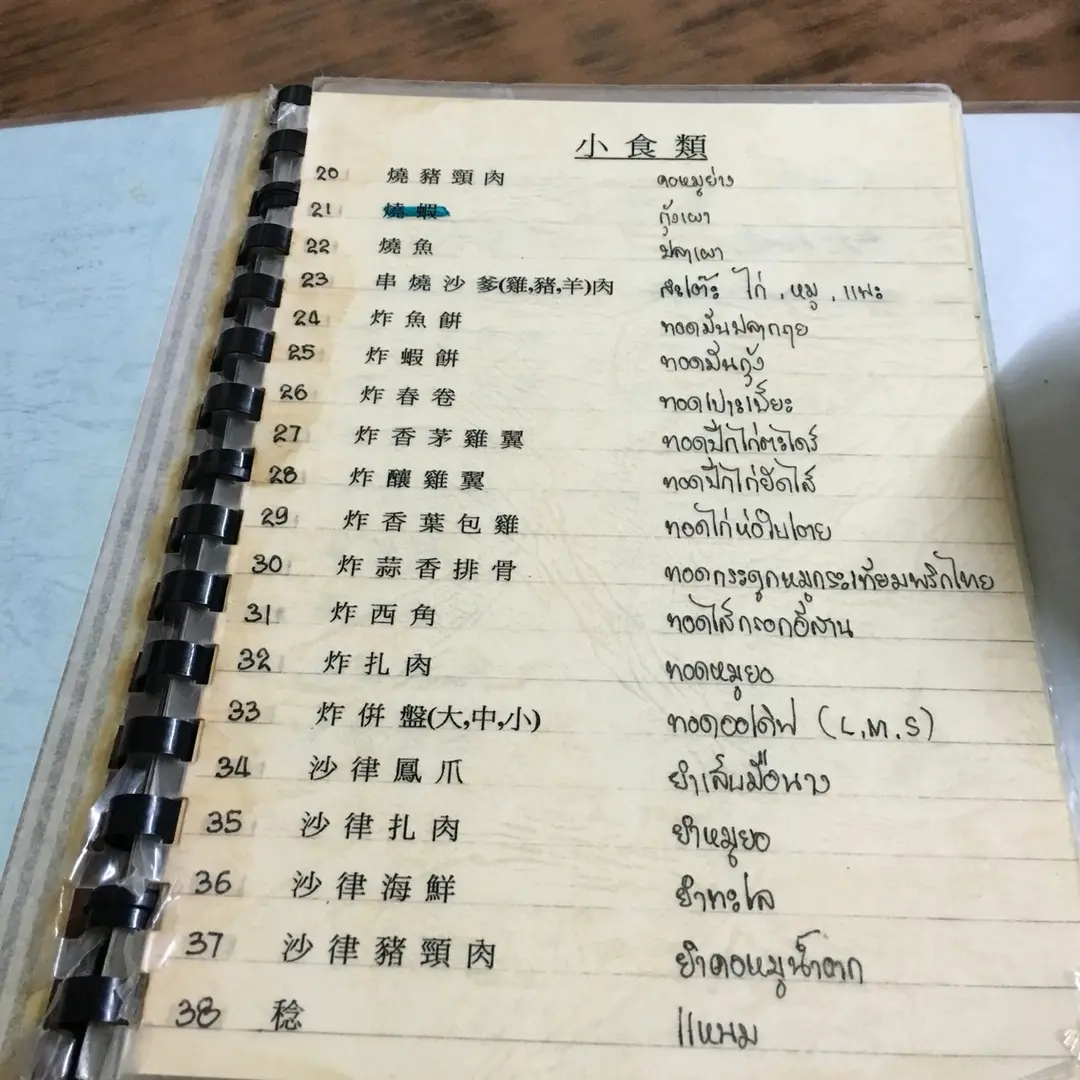 小食類
20 燒豬頸肉 คอหมูย่าง
21 燒蝦 กุ้งเผา
22 燒魚 ปลาเผา
23 串燒沙爹(雞,豬,羊)肉 สะเต๊ะ ไก่ , หมู , แพะ
24 炸魚餅 ทอดมันปลากราย
25 炸蝦餅 ทอดมันกุ้ง
26 炸春卷 ทอดเปาะเปี๊ยะ
27 炸香茅雞翼 ทอดปีกไก่ตะไคร้
28 炸釀雞翼 ทอดปีกไก่ยัดไส้
29 炸香葉包雞 ทอดไก่ห่อใบเตย
30 炸蒜香排骨 ทอดกระดูกหมูกระเทียมพริกไทย
31 炸西角 ทอดไส้กรอกอีสาน
32 炸扎肉 ทอดหมูยอ
33 炸併盤(大,中,小) ทอดออเดิฟ (L,M,S)
34 沙律鳳爪 ยำเล็บมือนาง
35 沙律扎肉 ยำหมูยอ
36 沙律海鮮 ยำทะเล
37 沙律豬頸肉 ยำคอหมูน้ำตก
38 稔 แหนม